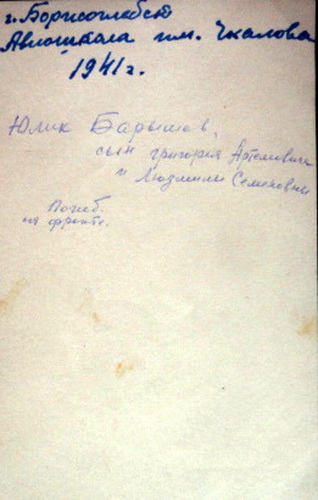 г. Борисоглебск
Авиашкола им. Чкалова
1941г.
Юлик Барышев,
сын григория Артемовича
и Людмилы Семеновны
Погиб.
на фронте.